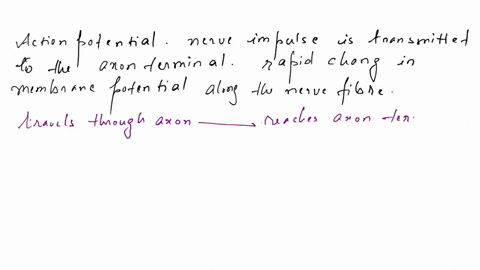 Action potential. nerve impulse is transmitted
to the axon terminal. rapid chang in
membrane potential along the nerve fibre.
travels through axon → reaches axon ter.